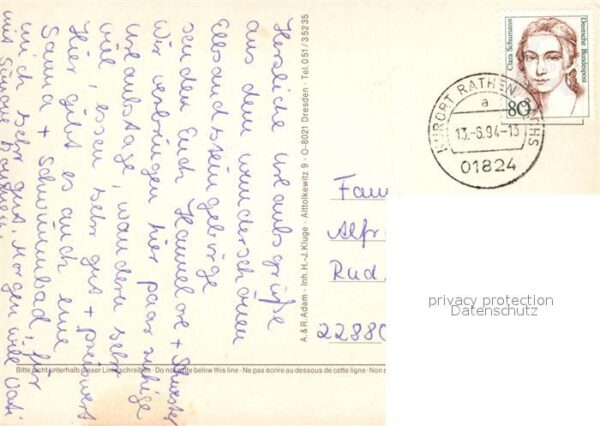 Herzliche Urlaubsgrüße
aus dem wunderschönen
Elbsandsteingebirge
senden Euch Hannelore +
Wir verbringen hier paar ruhige
Urlaubstage, wandern sehr
viel, essen sehr gut + preiswert
Hier gibt es auch eine
Sauna + Schwimmbad, für
mich sehr gut. Morgen will Vati
mit Simone
A. & R. Adam · Inh. H.-J. Kluge · Alttolkewitz 9 · O-8021 Dresden · Tel. 051/35235
Clara Schumann
Deutsche Bundespost
80
KURORT RATHEN
a
13.-6.94-13
01824
Fam
Alfr
Rud
22880
privacy protection
Datenschutz
Bitte nicht unterhalb dieser Linie schreiben · Do not write below this line · Ne pas écrire au dessous de cette ligne · Non s